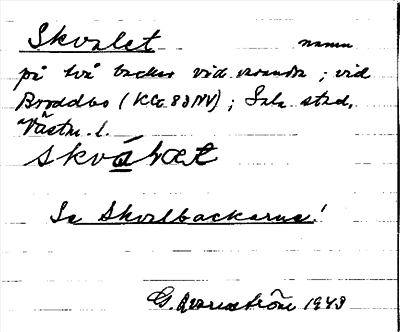 Skvalet namn
på två backar vid varandra ; vid
Broddbo (KCo 83NV) ; Sala stad,
Västm. l.
skvalet
Se Skvalbackarna!
G. 1943